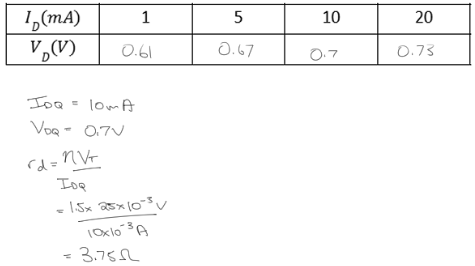 I_D(mA) 1 5 10 20
V_D(V) 0.61 0.67 0.7 0.73
I_DQ = 10mA
V_DQ = 0.7V
r_d = ηV_T
I_DQ
= 1.5 x 25x10⁻³ V
10x10⁻³ A
= 3.75Ω